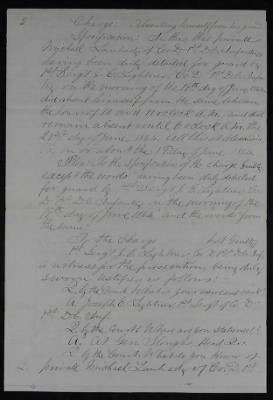 2
Charge: Absenting himself from his guard
Specification: In this that private
Michael Lambady of Co D 1st D.C. Infantry
having been duly detailed for guard by
1st Sergt J. E. Lightner Co D 1st D.C. Infan
try, on the morning of the 18th day of June 1864
did absent himself from the same between
the hours of 10 and 11 o'clock A.M. and did
remain absent until 6 o'clock A.M. the
19th day of June 1864. All this at Alexandria
Va. on or about the 18 Day of June 1864
Pleas. To the Specification of the charge Guilty
except the words "having been duly detailed
for guard by 1st Sergt J. E. Lightner Co
D 1st D.C. Infantry on the morning of the
18th day of June 1864" and the words from
the same"
To the Charge Not Guilty
1st Sergt J. E. Lightner Co D 1st D.C. Inf.
a witness for the prosecution being duly
sworn testifies as follows:
Q. by the Court What is your name and rank?
A. Joseph E. Lightner, 1st Sergt of Co D.
1st D.C. Inf.
Q. by the Court Where are you stationed?
A. At Gen Slough Head Qrs.
Q. by the Court What do you know of
private Michael Lambady of Co D, 1st